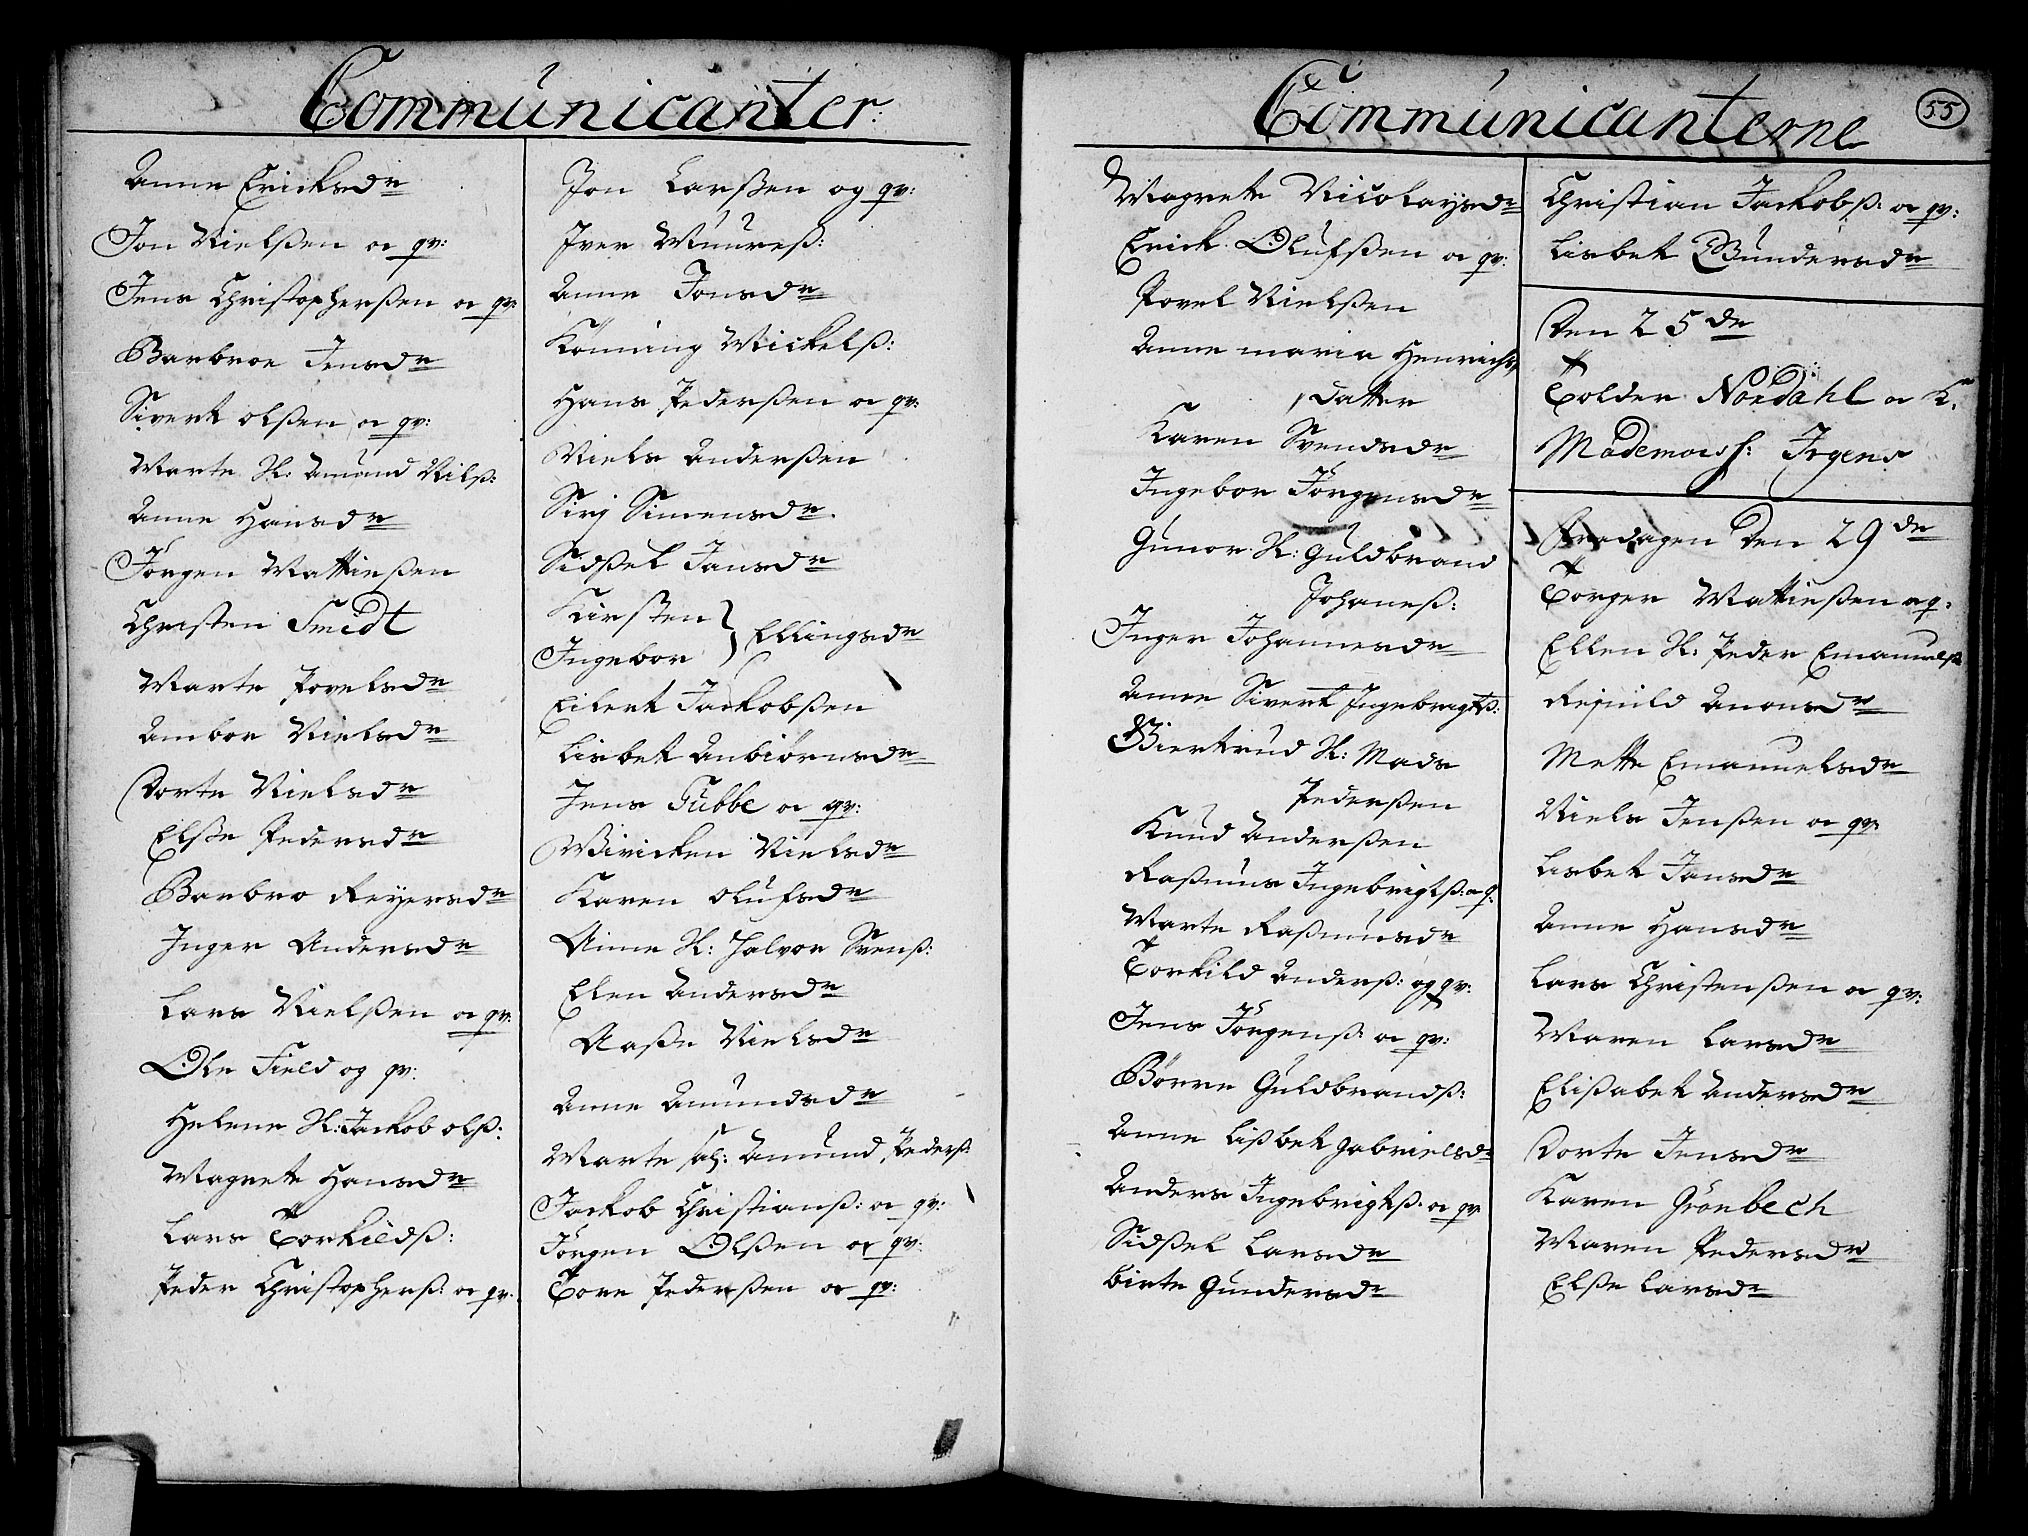 Communicanter.
Anne Ericksdr
Jon Nielßen o qv:
Jens Christopherßen o qv:
Barbroe Jensdr
Sivert Olßen o qv:
Marte K: Amund Nilß:
Anne Hansdr
Jörgen Mattiesßen
Christen Smidt
Marte Povelsdr
Ambor Nielsdr
Dorte Nielsdr
Elße Pedersdr
Barbro Reyersdr
Inger Andersdr
Lars Nielßen o qv:
Ole Field og qv:
Helene K: Jackob Olß:
Magrete Hansdr
Lars Torkildß:
Peder Christopherß: o qv:
Jon Larßen og qv:
Iver Muureß:
Anne Jonsdr
Köning Mickelß:
Hans Pederßen o qv:
Niels Anderßen
Sirj Simensdr.
Sidßel Jansdr
Kirsten } Ellingsdr
Ingebor
Eilert Jackobßen
Lisbet Anbiörnsdr
Jens Tubbe o qv:
Wivicken Nielsdr
Karen Olufsdr
Anne K: Halvor Svenß:
Elen Andersdr
Aaße Nielsdr
Anne Amundsdr
Marte sal: Amund Pederß:
Jackob Christianß: o qv:
Jörgen Olßen o qv:
Tore Pederßen o qv:
Communicanterne
55
Magrete Nicolaysdr
Erick Olufßen o qv:
Povel Nielßen
Anne Maria Henrichs
Datter
Karen Svendsdr
Ingebor Jörgensdr
Gunor K: Guldbrand
Johanneß:
Inger Johannesdr
Anne Sivert Ingebrigtß:
Biertrud K: Mads
Pederßen
Knud Anderßen
Raßmus Ingebrigtß: o q:
Marte Raßmusdr
Torkild Anderß: og qv:
Jens Jörgenß: o qv:
Börre Guldbrandß:
Anne Lißbet Gabrielsdr
Anders Ingebrigtß: o qv:
Sidßel Larsdr
Birte Gundersdr
Christian Jackobß: o qv:
Lisbet Gundersdr
Den 25de
Tolder Nordahl o K.
Mademoisß: Irgens
Fredagen Den 29de
Torger Mattiesßen o q:
Ellen K: Peder Emanuelß:
Rejnild Anonsdr
Mette Emanuelsdr
Niels Jenßen o qv:
Lisbet Jansdr
Anne Hansdr
Lars Christenßen o qv:
Maren Larsdr
Elißabet Andersdr
Dorte Jensdr
Karen Grönbech
Maren Pedersdr
Elße Larsdr